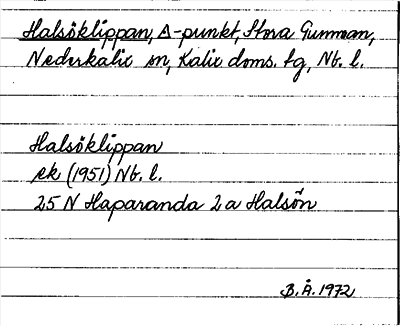 Halsöklippan, Δ-punkt, Stora Gumman,
Nederkalix sn, Kalix doms. tg, Nb. l.
Halsöklippan
ek (1951) Nb. l.
25 N Haparanda 2a Halsön
B.Å. 1972